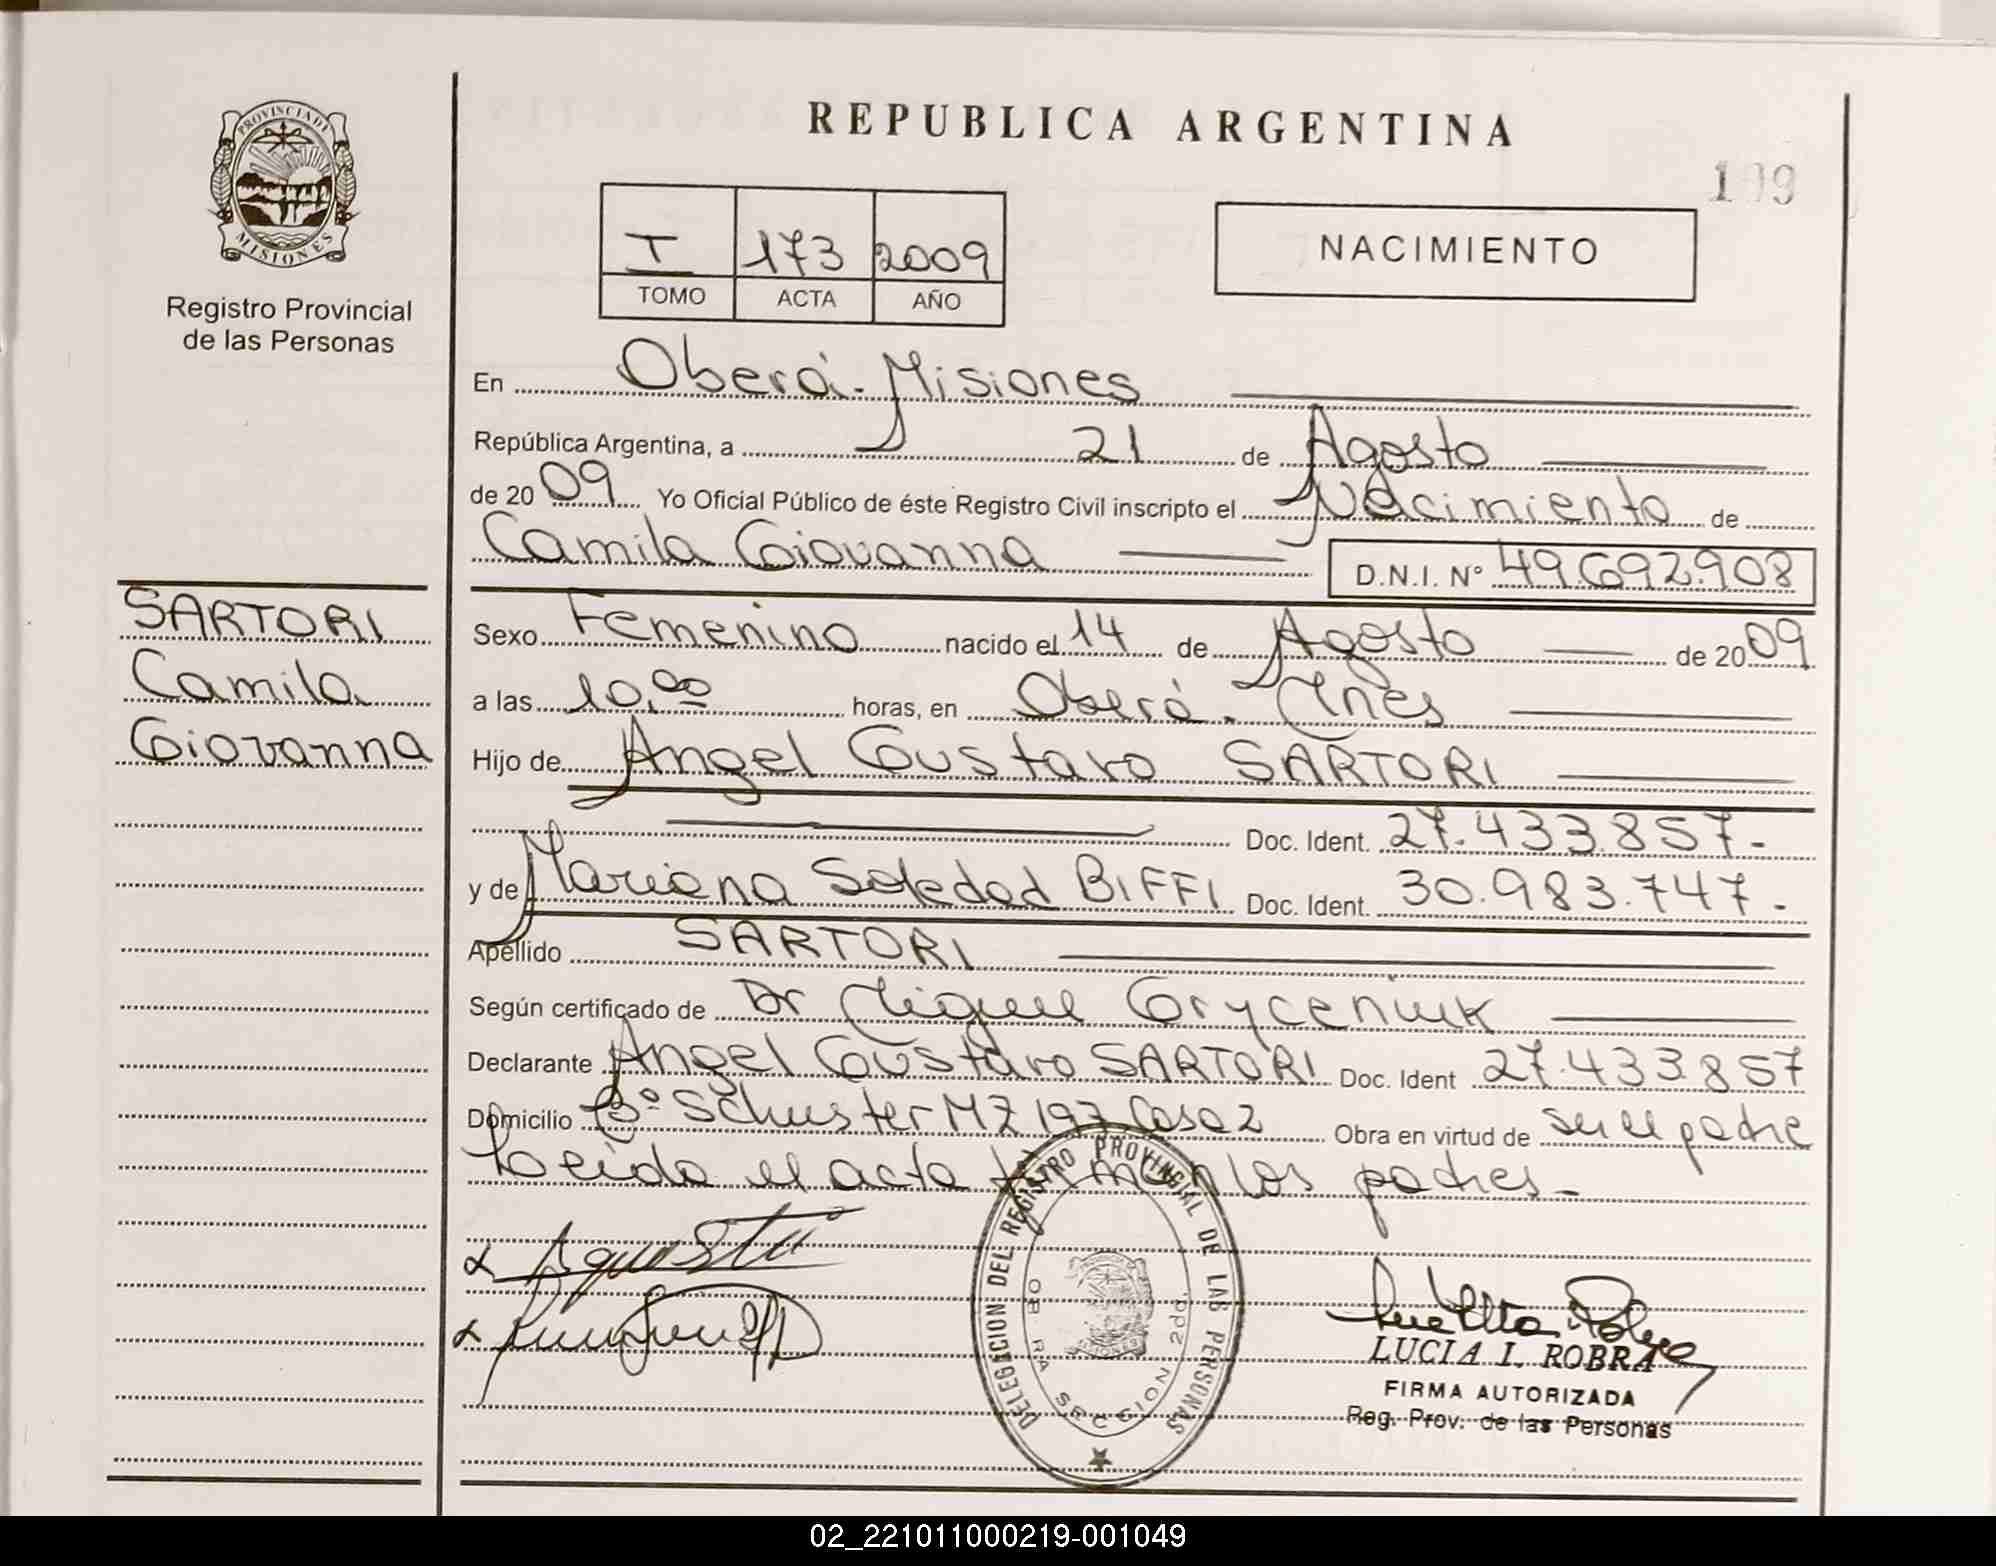 PROVINCIA DE
MISIONES
Registro Provincial
de las Personas
SARTORI
Camila
Giovanna
REPUBLICA ARGENTINA
I 173 2009
TOMO ACTA AÑO
NACIMIENTO
En Oberá - Misiones
República Argentina, a 21 de Agosto
de 2009 Yo Oficial Público de éste Registro Civil inscripto el Nacimiento de
Camila Giovanna D.N.I. Nº 49.692.908
Sexo Femenino nacido el 14 de Agosto de 2009
a las 10,00 horas, en Oberá - Mnes
Hijo de Angel Gustavo SARTORI
Doc. Ident. 27.433.857.-
y de Mariana Soledad BIFFI Doc. Ident. 30.983.747.-
Apellido SARTORI
Según certificado de Dr Miguel Gryceniuk
Declarante Angel Gustavo SARTORI Doc. Ident 27.433.857
Domicilio Bº Schuster MZ 197 Casa 2 Obra en virtud de ser el padre
Leida el acta firman los padres.-
DELEGACION DEL REGISTRO PROVINCIAL DE LAS PERSONAS
SECCION 2da.
LUCIA I. ROBRA
FIRMA AUTORIZADA
Reg. Prov. de las Personas
02_221011000219-001049